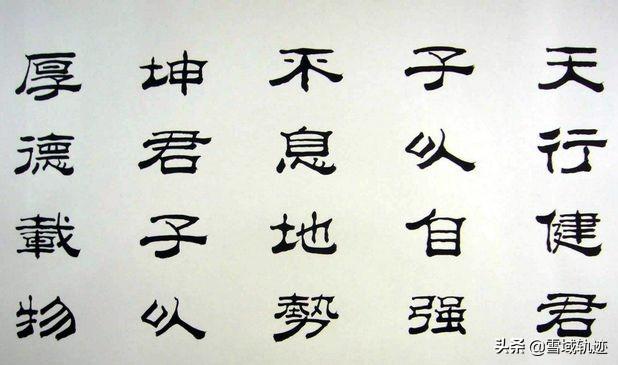 天行健君
子以自强
不息地勢
坤君子以
厚德載物
头条 @雪域轨迹